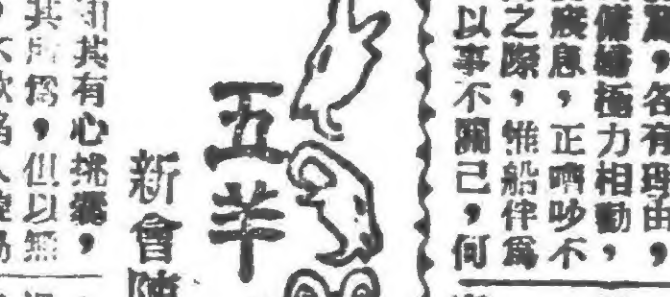 爲，各有理由，
傭婦極力相勸，
疲息，正嘈吵不
之際，惟船伴爲
以事不關己，何
五羊
新會陳
知其有心挑撥，
其所爲，但以無